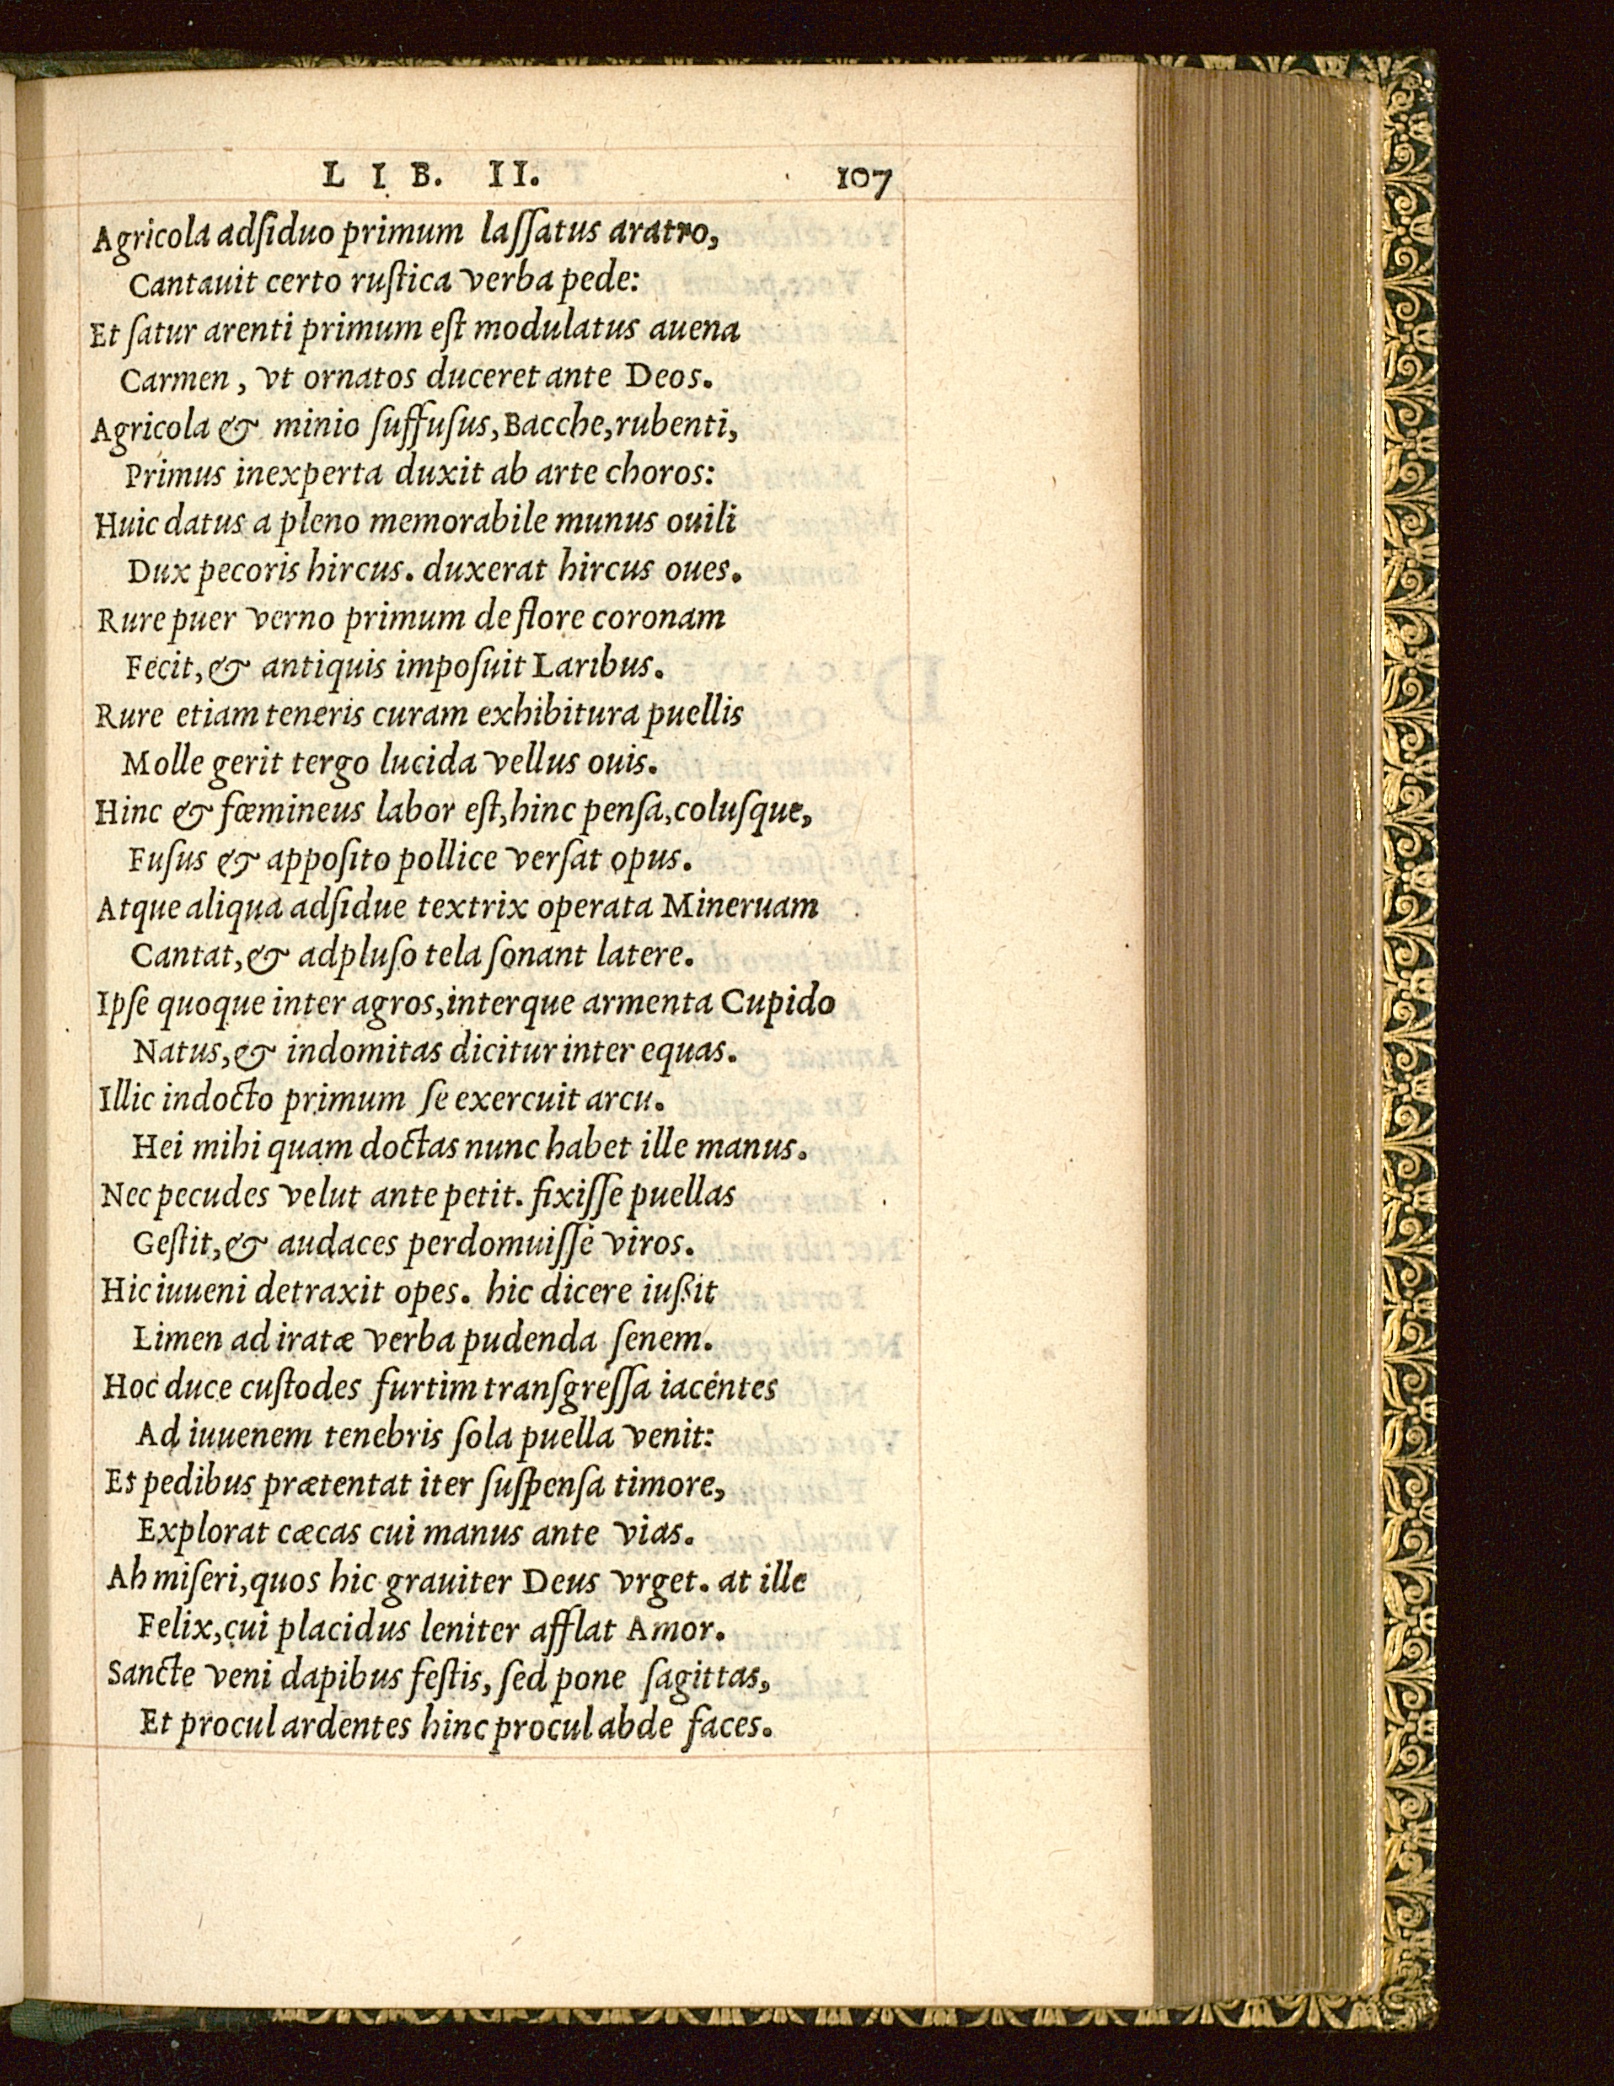 LIB. II. 107
Agricola adſiduo primum laſſatus aratro,
Cantauit certo ruſtica verba pede:
Et ſatur arenti primum eſt modulatus auena
Carmen, vt ornatos duceret ante Deos.
Agricola & minio ſuffuſus, Bacche, rubenti,
Primus inexperta duxit ab arte choros:
Huic datus a pleno memorabile munus ouili
Dux pecoris hircus. duxerat hircus oues.
Rure puer verno primum de flore coronam
Fecit, & antiquis impoſuit Laribus.
Rure etiam teneris curam exhibitura puellis
Molle gerit tergo lucida vellus ouis.
Hinc & fœmineus labor eſt, hinc penſa, coluſque,
Fuſus & appoſito pollice verſat opus.
Atque aliqua adſidue textrix operata Mineruam
Cantat, & adpluſo tela ſonant latere.
Ipſe quoque inter agros, interque armenta Cupido
Natus, & indomitas dicitur inter equas.
Illic indocto primum ſe exercuit arcu.
Hei mihi quam doctas nunc habet ille manus.
Nec pecudes velut ante petit. fixiſſe puellas
Geſtit, & audaces perdomuiſſe viros.
Hic iuueni detraxit opes. hic dicere iußit
Limen ad iratæ verba pudenda ſenem.
Hoc duce cuſtodes furtim tranſgreſſa iacentes
Ad iuuenem tenebris ſola puella venit:
Et pedibus prætentat iter ſuſpenſa timore,
Explorat cæcas cui manus ante vias.
Ah miſeri, quos hic grauiter Deus vrget. at ille
Felix, cui placidus leniter afflat Amor.
Sancte veni dapibus feſtis, ſed pone ſagittas,
Et procul ardentes hinc procul abde faces.